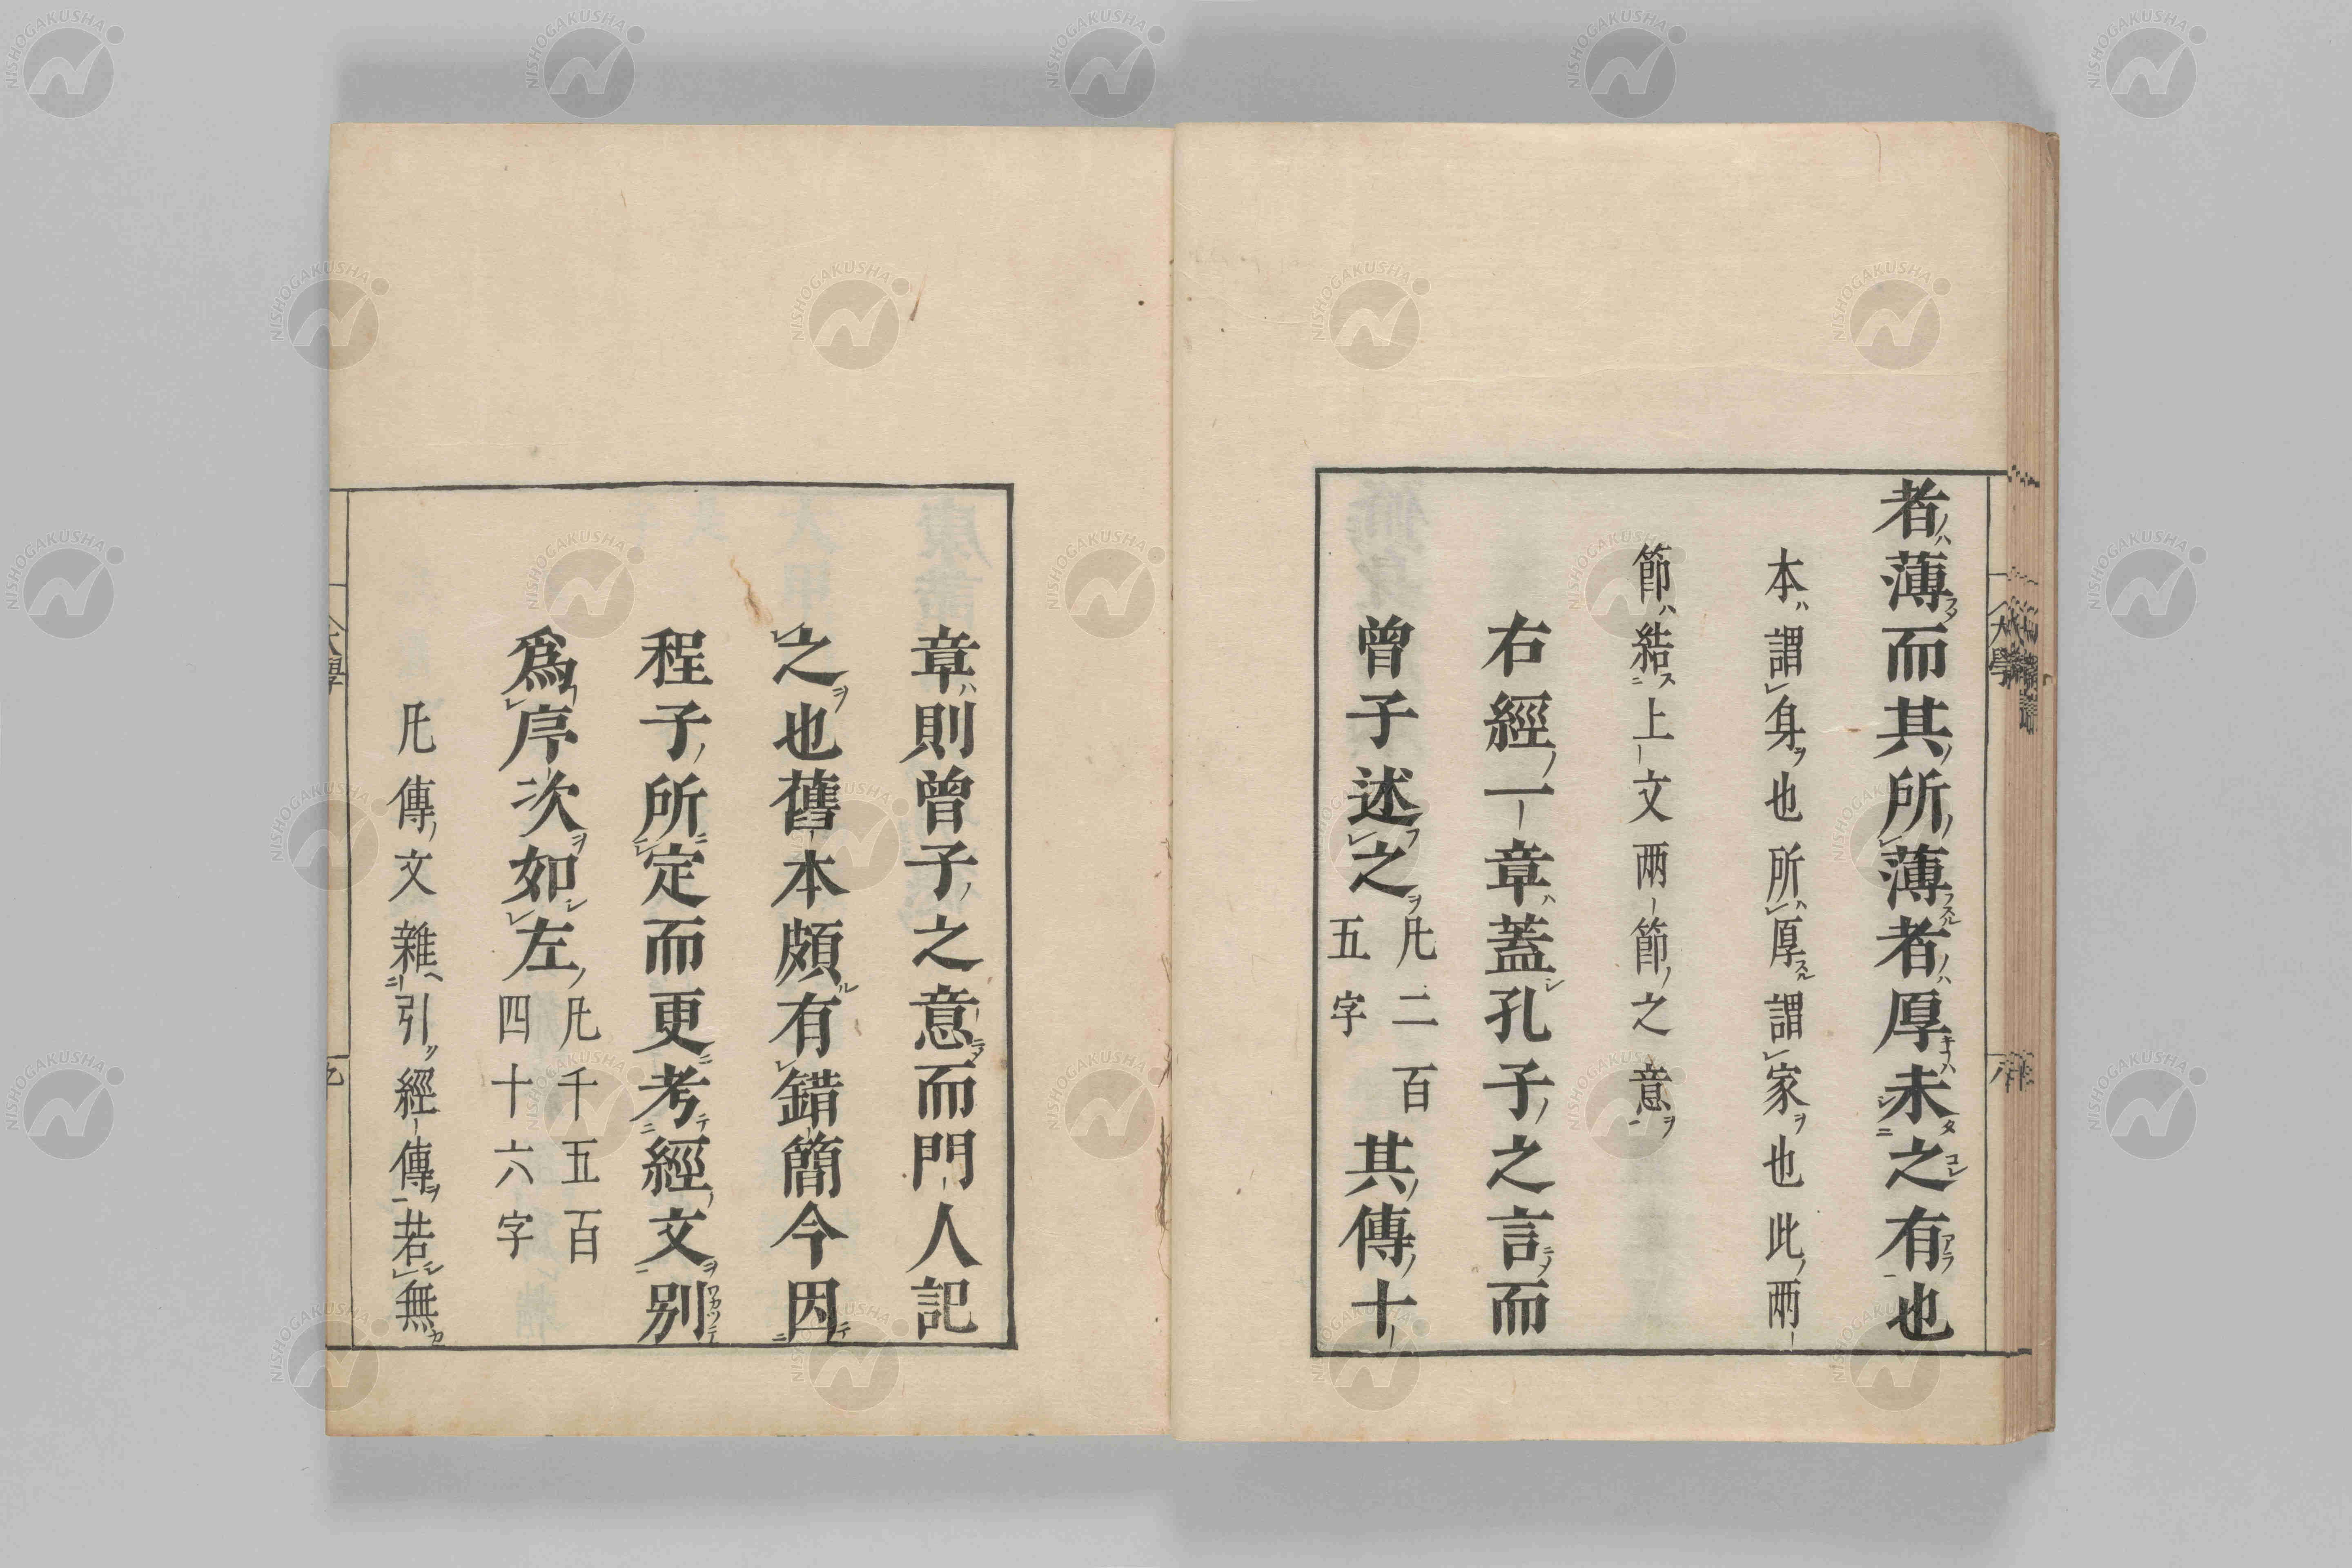 者薄而其所薄者厚未之有也
本謂身也所厚謂家也此兩
節結上文兩節之意
右經一章蓋孔子之言而
曾子述之
凡二百
五字
其傳十
章則曾子之意而門人記
之也舊本頗有錯簡今因
程子所定而更考經文別
爲序次如左
凡千五百
四十六字
凡傳文雜引經傳若無
大學
NISHOGAKUSHA